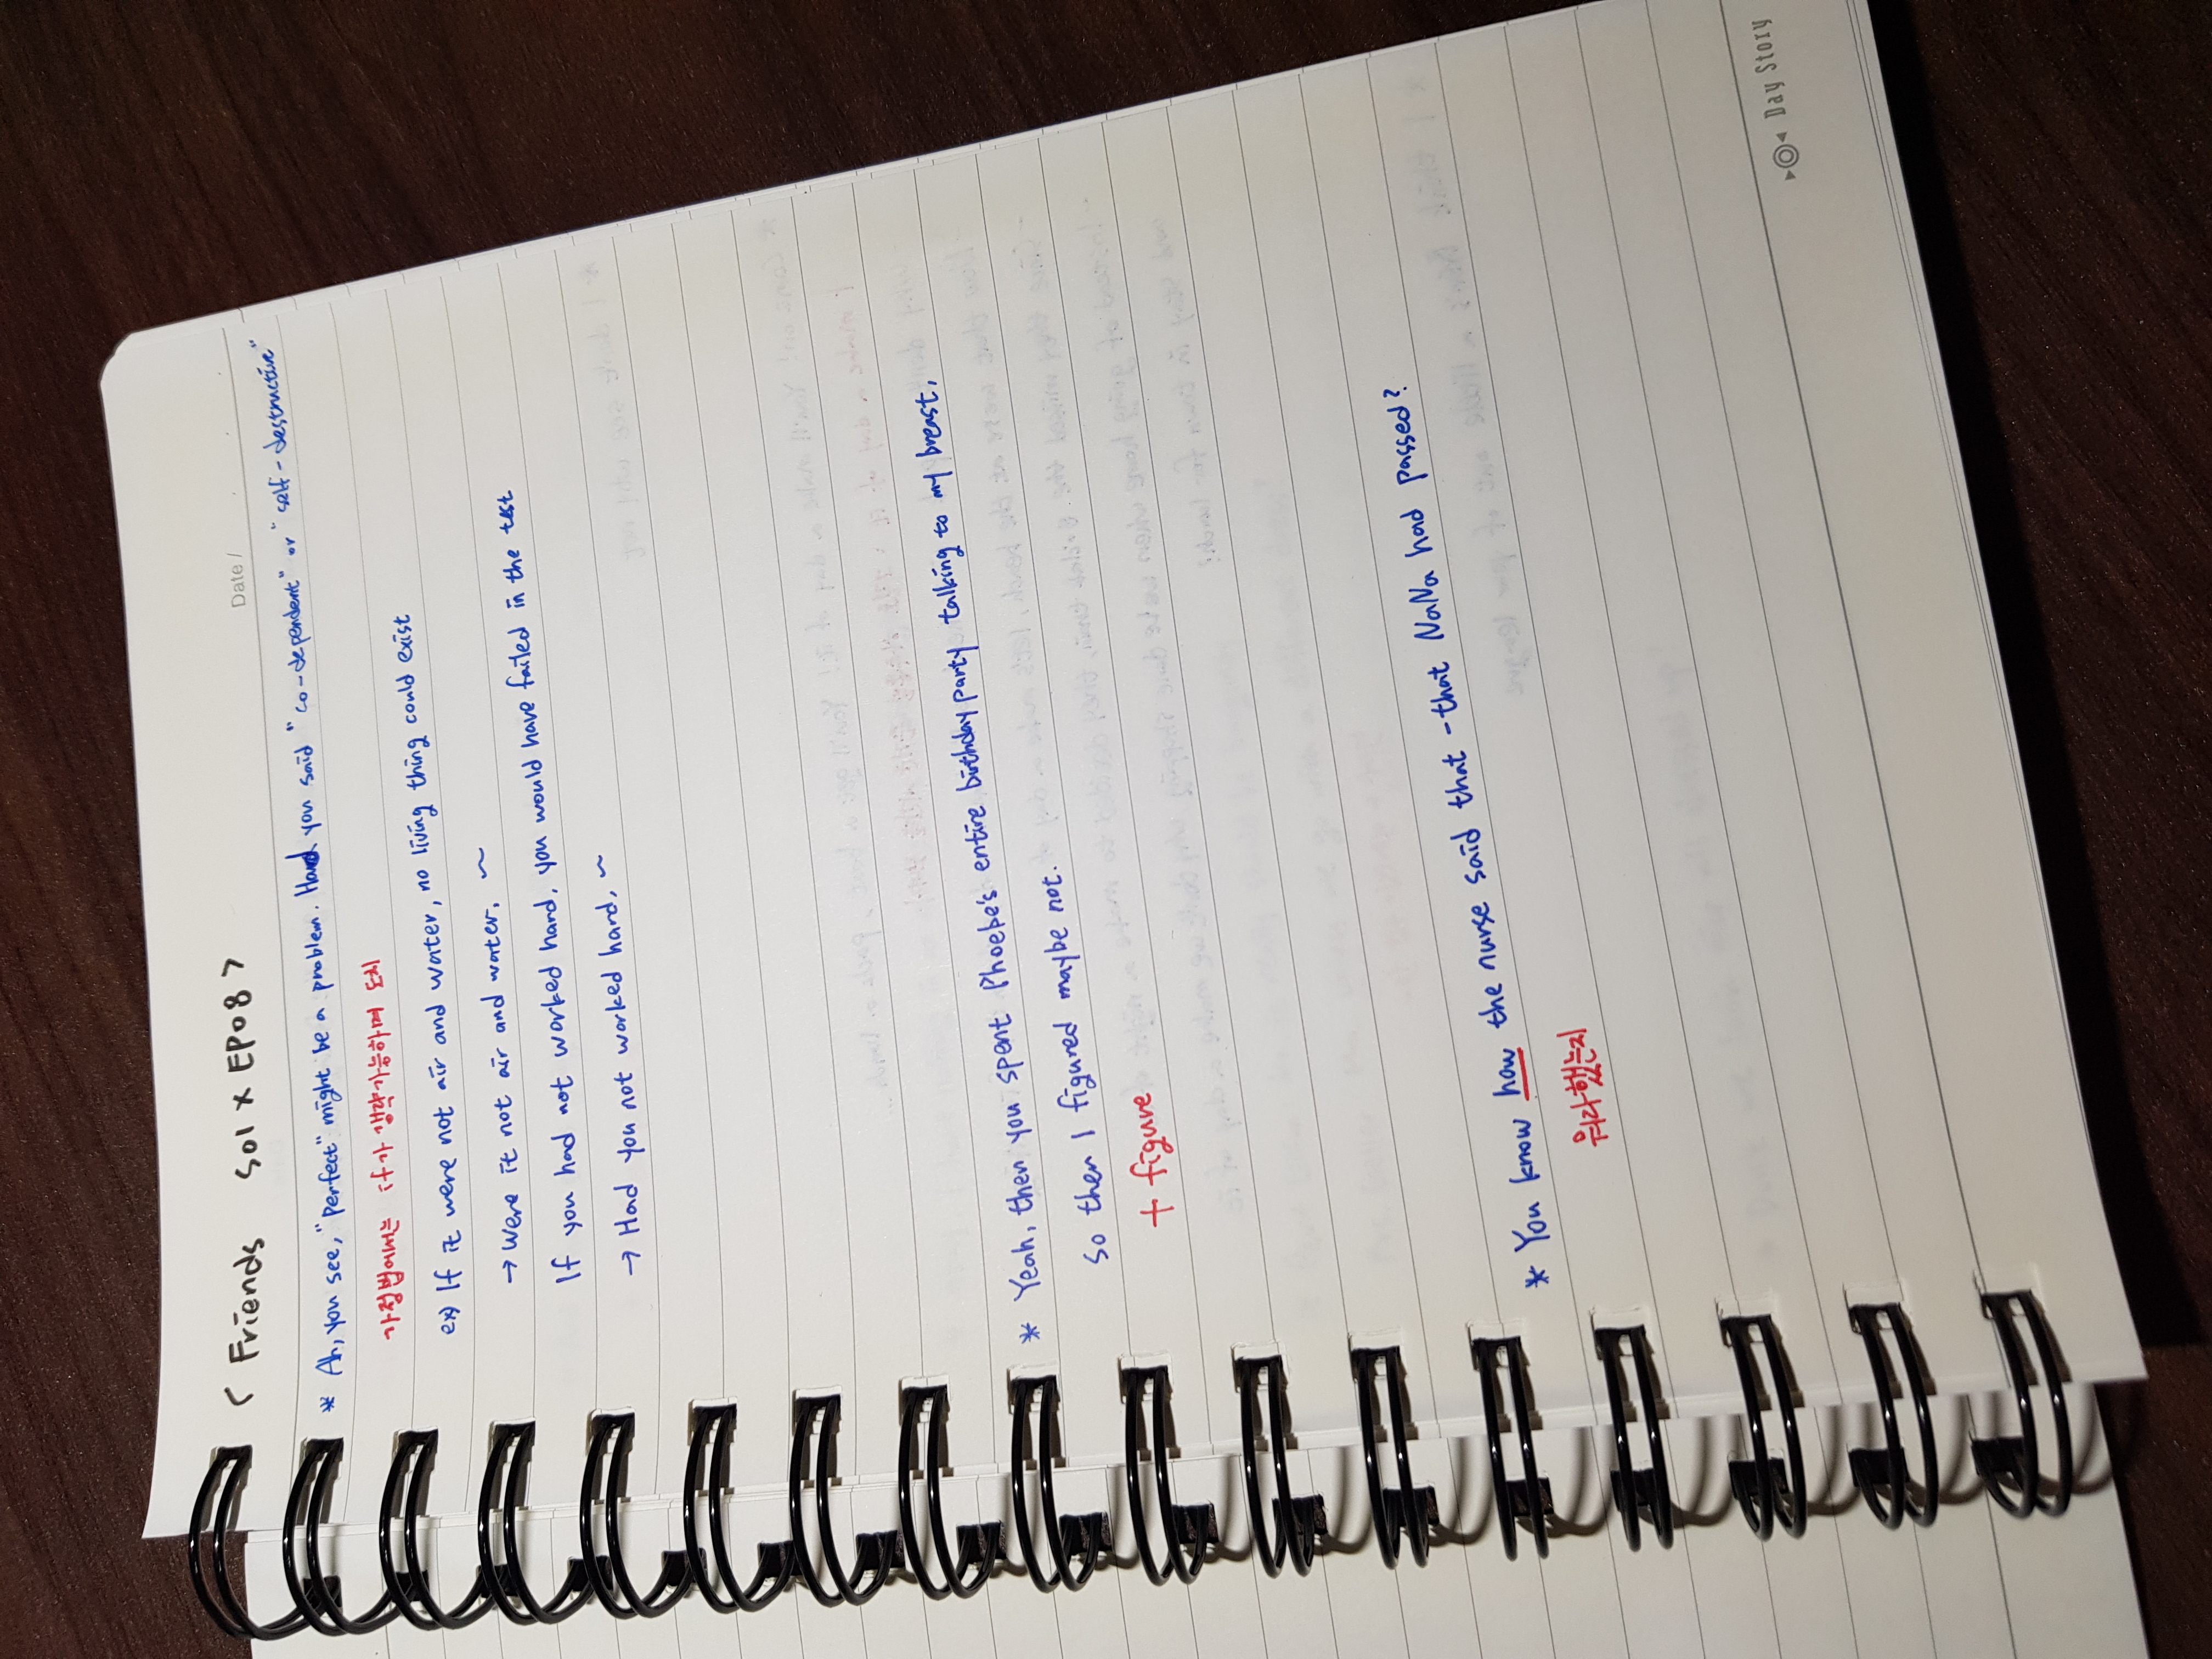 Date /
< Friends S01 x EP08 >
* Ah, you see, "perfect" might be a problem. Had you said "co-dependent" or "self-destructive"
가정법에서는 if가 생략가능하며 도치
ex) If it were not air and water, no living thing could exist
→ Were it not air and water, ~
If you had not worked hard, you would have failed in the test
→ Had you not worked hard, ~
* Yeah, then you spent Phoebe's entire birthday party talking to my breast,
so then I figured maybe not.
+ figure
* You know how the nurse said that - that NaNa had passed?
뭐라했는지
Day Story